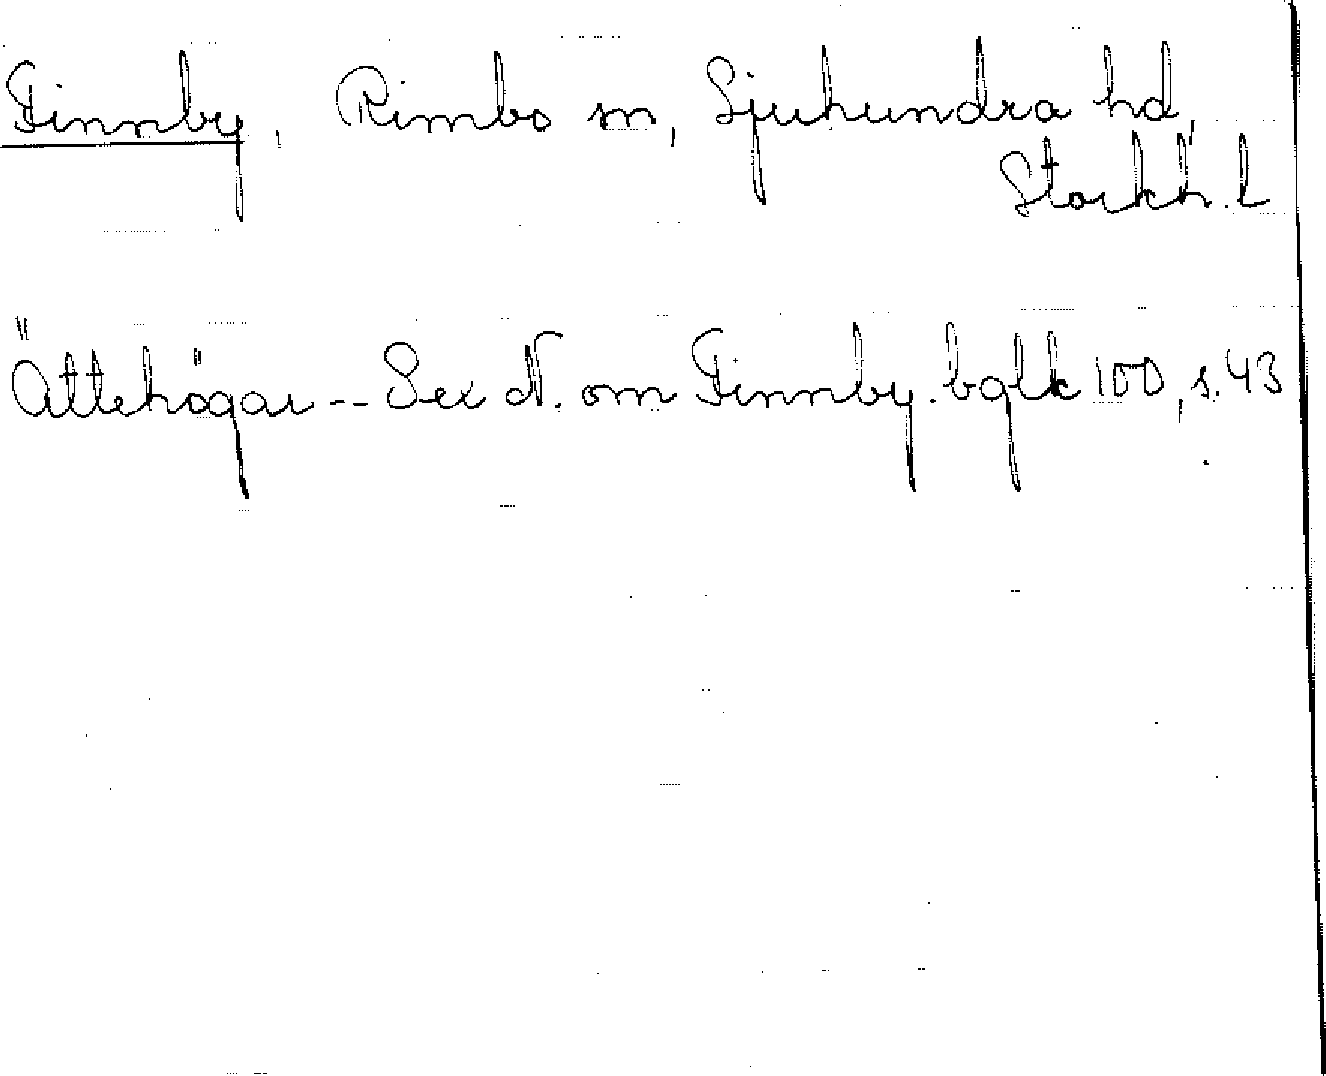 Finnby, Rimbo sn, Sjuhundra hd,
Stockh. l
Ättehögar -- Sex N. om Finnby. bglk 100, s. 43